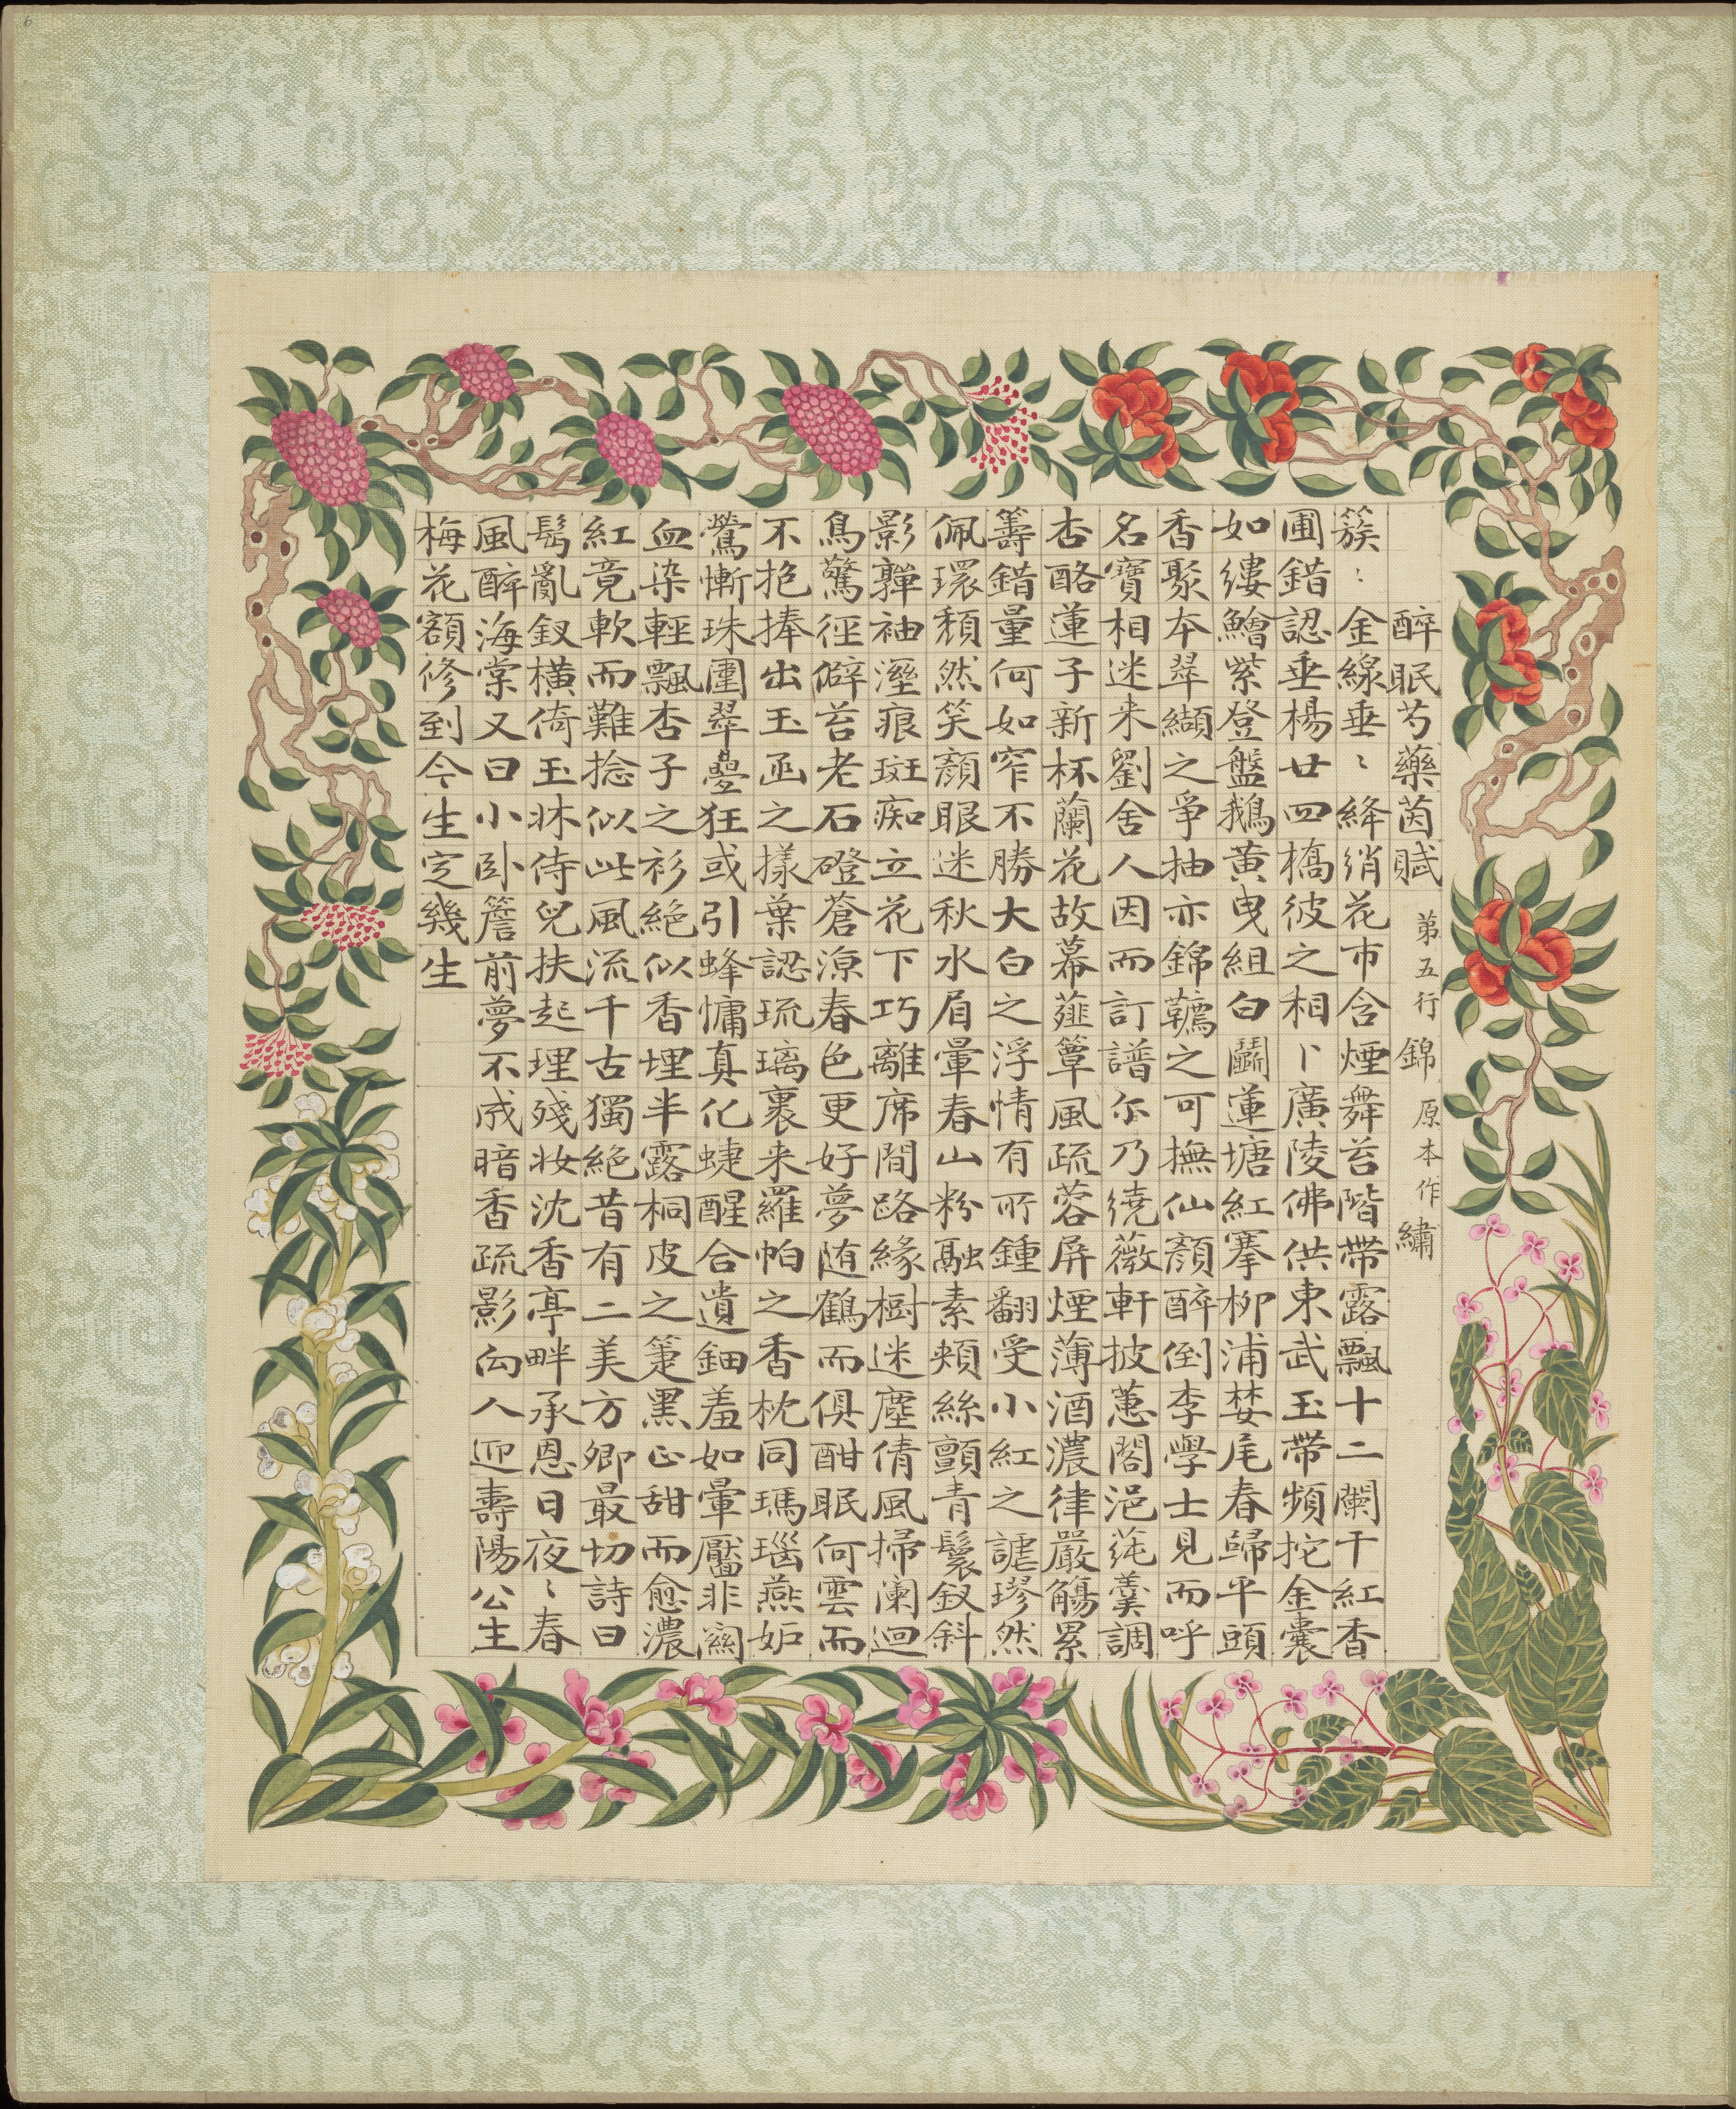 醉眠芍藥茵賦 弟五行錦原本作繡
簇〻金線垂〻絳綃花市含煙舞苔階帶露飄十二闌干紅香
圃錯認垂楊廿四橋彼之相卜廣陵佛供東武玉帶頻拕金囊
如縷鱠紫登盤鵝黃曳組白鬭蓮塘紅搴柳浦婪尾春歸平頭
香聚本翠纈之爭抽亦錦韉之可撫仙顏醉倒李學士見而呼
名寶相迷来劉舍人因而訂譜尔乃繞薇軒披蕙閣浥蒓羹調
杏酪蓮子新杯蘭花故幕薤簟風疏蓉屏煙薄酒濃律嚴觴累
籌錯量何如窄不勝大白之浮情有所鍾翻受小紅之謔璆然
佩環頹然笑顏眼迷秋水眉暈春山粉融素頰絲顫青鬟釵斜
影嚲袖溼痕斑痴立花下巧離席間路緣樹迷塵倩風掃闌迴
鳥驚徑僻苔老石磴蒼涼春色更好夢随鶴而俱酣眠何雲而
不抱捧出玉函之樣葉認琉璃裹来羅帕之香枕同瑪瑙燕妒
鶯慚珠圍翠疊狂或引蜂慵真化蜨醒合遺鈿羞如暈靨非關
血染輕飄杏子之衫絕似香埋半露桐皮之箑黑正甜而愈濃
紅竟軟而難捻似此風流千古獨絕昔有二美方卿最切詩曰
髩亂釵橫倚玉牀侍兒扶起理殘妝沈香亭畔承恩日夜〻春
風醉海棠又曰小卧簷前夢不成暗香疏影向人迎壽陽公主
梅花額修到今生定幾生